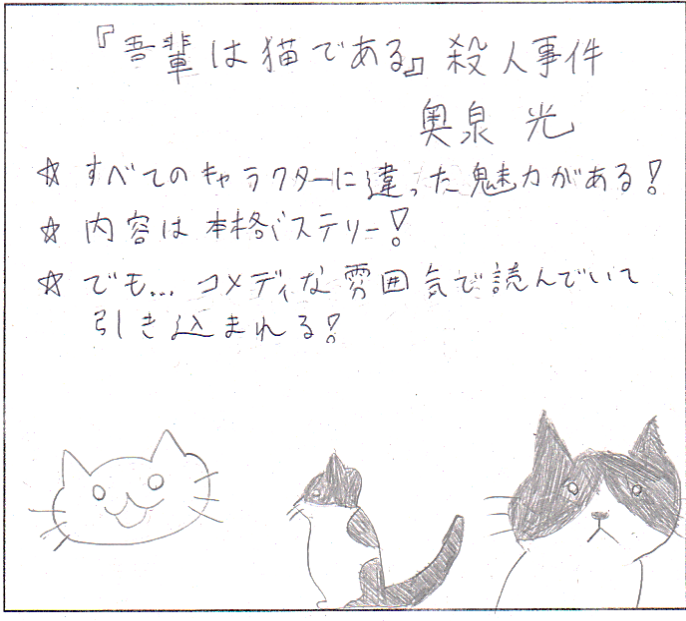 『吾輩は猫である』殺人事件
奥泉 光
☆ すべてのキャラクターに違った魅力がある!
☆ 内容は本格ミステリー!
☆ でも... コメディな雰囲気で読んでいて
引き込まれる!